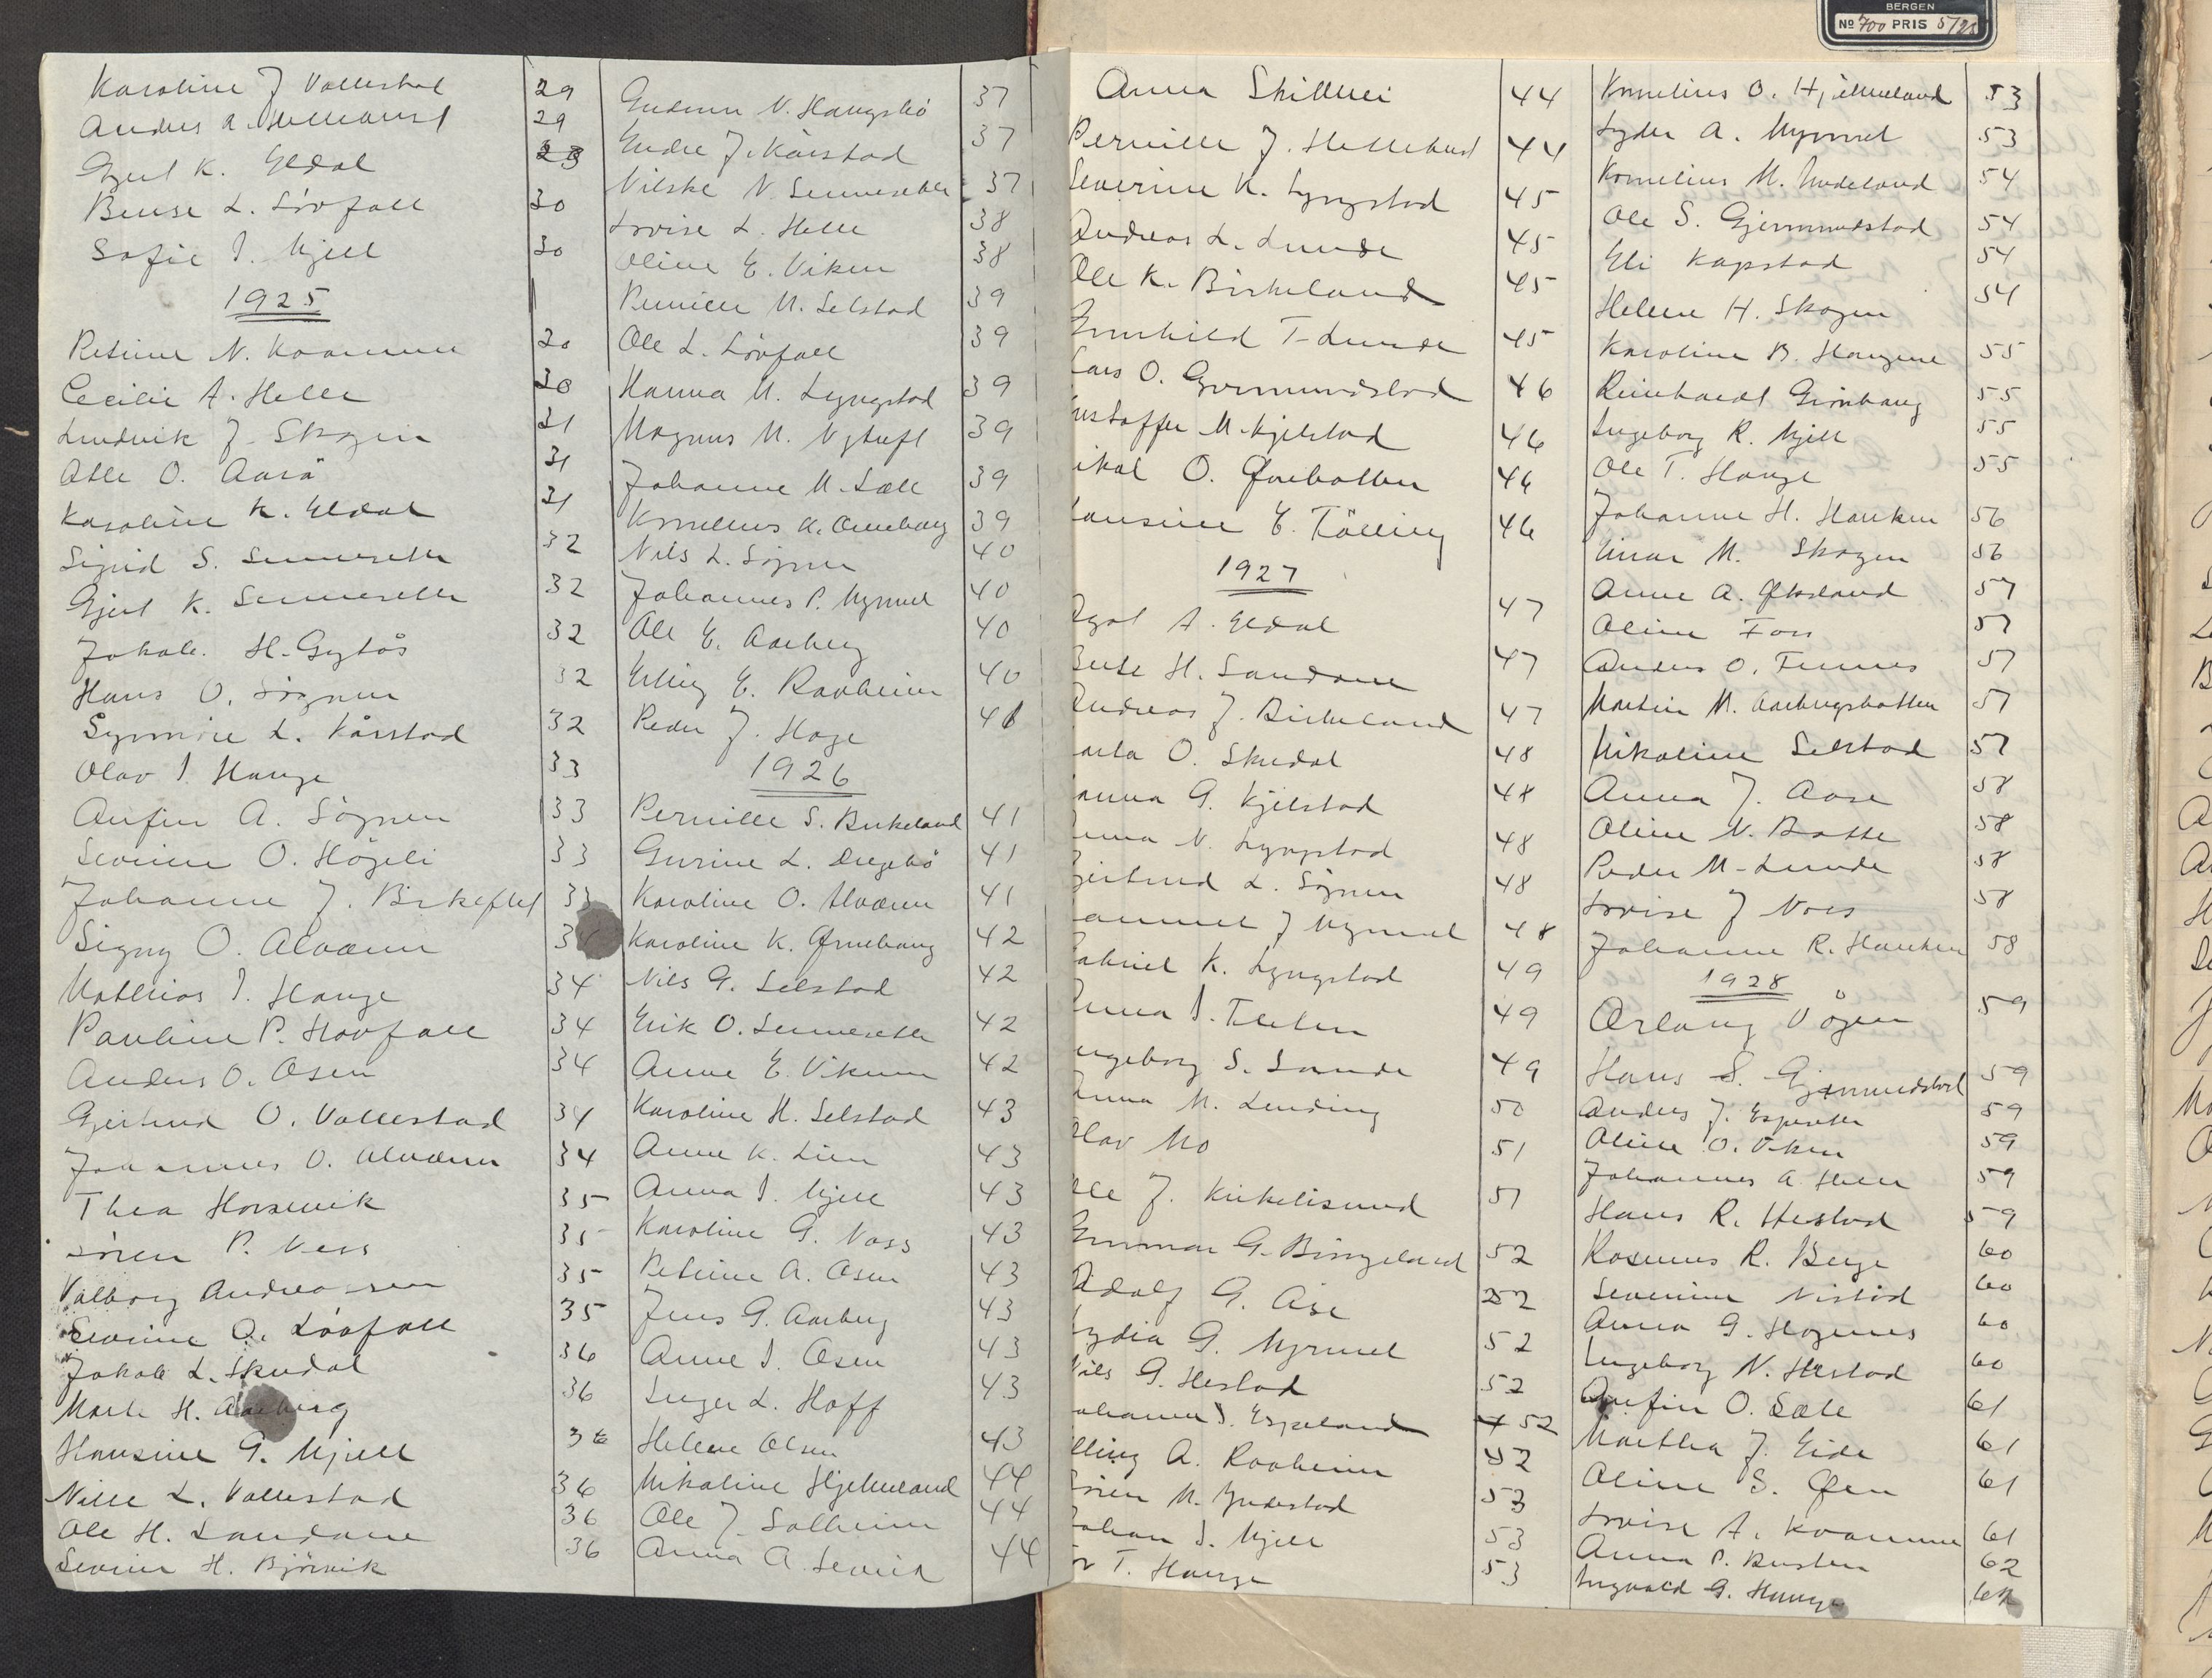 BERGEN
No 700 PRIS 5/25
Karoline J Vallestad 29
Anders A. 29
Gjert K. Eldal
Beuse L. Lövfall 30
Sofie I. Mjell 30
1925
Petrine N. Kvamme 30
Cecilie A. Helle 30
Ludvik J. Skogen 31
Atle O. Aasö 31
Karoline K. Eldal 31
Sigrid S. Sunneseter 32
Gjert K. Sunneseter 32
Jakob H. 32
Hans O. Sögnen 32
Synnöve L. Kårstad 32
Olav I. Hauge 33
Anfin A. Sögnen 33
Severine O. Högeli 33
Johanne J. Birkeflet 33
Signy O. Alværen
Mathias I. Hauge 34
Pauline P. Hovfall 34
Anders O. Osen 34
Gjertrud O. Vallestad 34
Johannes O. Alværen 34
Thea Horsevik 35
Sören P. Ness 35
Valborg Andreassen 35
Severine O. Lövfall 35
Jakob L. Skudal 36
Marta H. Aarberg 36
Hansine G. Mjell 36
Nille L. Vallestad 36
Ole H. Sandane 36
Severin H. Björnvik 36
Gudrun N. Haugsbö 37
Endre J. Kårstad 37
Nilske N. Sunneseter 37
Lovise L. Helle 38
Oline E. Viken 38
Pernille M. Selstad 39
Ole L. Lövfall 39
Hanna M. Lyngstad 39
Magnus M. Nytuft 39
Johanne M. Sæle 39
Kornelius A. 39
Nils L. Sögnen 40
Johannes P. Myrmel 40
Ole E. Aarberg 40
Erling E. Raaheim 40
Peder J. Hage 41
1926
Pernille S. Birkeland 41
Gurine L. Dregebö 41
Karoline O. Alværen 41
Karoline K. Ørnehaug 42
Nils G. Selstad 42
Erik O. Sunneseter 42
Anne E. Vikum 42
Karoline H. Selstad 43
Anne K. Lien 43
Anna I. Mjell 43
Karoline G. Vass 43
Petrine A. Osen 43
Jens G. Aarberg 43
Anne I. Osen 43
Inger L. Hoff 43
Helene Olsen 43
Nikoline Hjelmeland 44
Ole J. Solheim 44
Anna A. 44
Anna Skilbrei 44
Pernille J. Hellebust 44
Severine K. Lyngstad 45
Andreas L. Lunde 45
Ole K. Birkeland 45
Gunhild T. Lunde 45
Lars O. Gjermundstad 46
ristoffer M. Kjelstad 46
ikal O. Øvrebotten 46
ansine E. Tälling 46
1927
A. Eldal 47
Berte H. Sandane 47
Andreas J. Birkeland 47
arta O. Skudal 48
anna G. Kjelstad 48
nna N. Lyngstad 48
Gjertrud L. Sögnen 48
ammel J Myrmel 48
abriel K. Lyngstad 49
nna I. 49
ngeborg S. Sande 49
nna M. Lending 50
Olav Mo 51
Ole J. Kirkelisund 51
Gunnar G. Bringeland 52
Adolf G. Åse 52
Lydia G. Myrmel 52
Nils G. Hestad 52
ohanne I. Espeland 52
lling A. Raaheim 52
ören M. Yndestad 53
ohan I. Mjell 53
T. Hauge 53
Kornelius O. Hjelmeland 53
Lyder A. Myrmel 53
Kornelius M. Indeland 54
Ole S. Gjermundstad 54
Eli Kapstad 54
Helene H. Skogen 54
Karoline B. Haugene 55
Reinhardt Grönhaug 55
Ingeborg R. Mjell 55
Ole T. Hauge 55
Johanne H. Hauken 56
Einar M. Skogen 56
Anne A. Øksland 57
Oline Foss 57
Anders O. Tennes 57
Martin M. Aarbergsbotten 57
Nikoline Selstad 57
Anna J. Aase 58
Oline N. Botte 58
Peder M. Lunde 58
Lovise J Vass 58
Johanne R. Hauken 58
1928
Arlaug Vögen 59
Hans S. Gjermundstad 59
Anders J. Espeseter 59
Oline O. Viken 59
Johannes A. Helle 59
Hans R. Hestad 59
Rasmus R. Berge 60
Severine Nistad 60
Anna G. Hognes 60
Ingeborg N. Hestad 60
Anfin O. Sæle 61
Martha J. Eide 61
Oline S. Øen 61
Lovise A. Kvamme 61
Anna P. 62
Ingvald G. Hauge 62